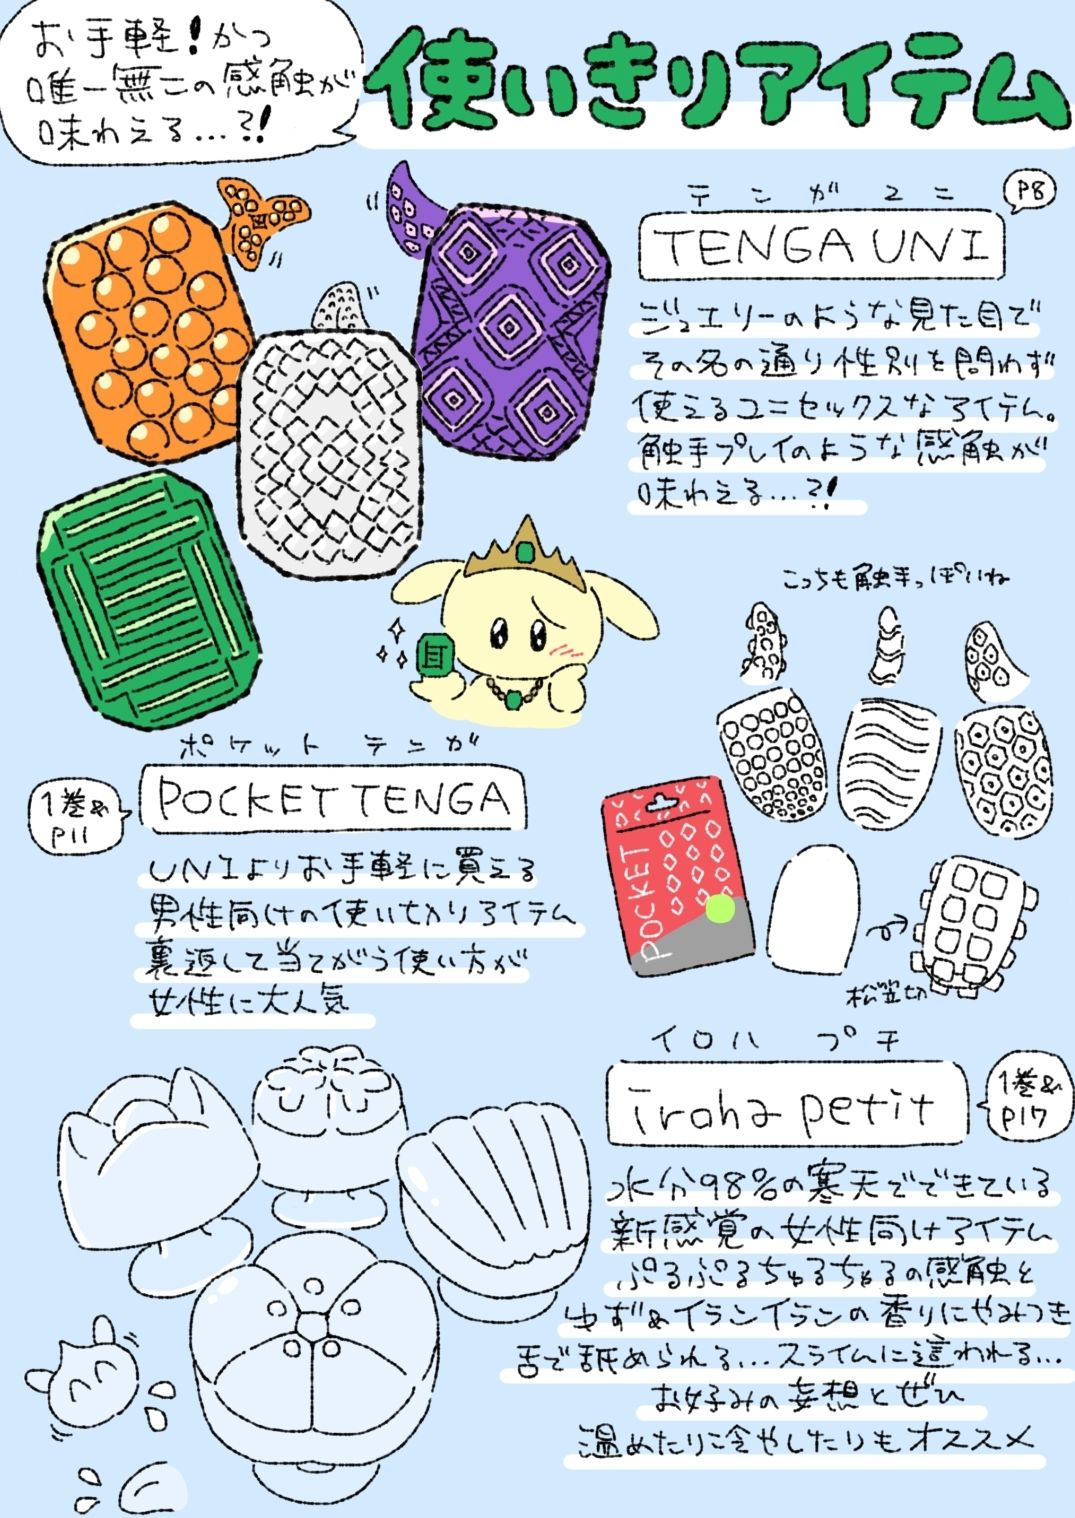 お手軽!かつ
唯一無二の感触が
味わえる...?!
使いきりアイテム
テンガ ユニ
P8
TENGA UNI
ジュエリーのような見た目で
その名の通り性別を問わず
使えるユニセックスなアイテム。
触手プレイのような感触が
味わえる...?!
こっちも触手っぽいね
ポケット テンガ
1巻&
P11
POCKET TENGA
UNIよりお手軽に買える
男性向けの使いきりアイテム
裏返して当てがう使い方が
女性に大人気
POCKET
松笠切
イロハ プチ
1巻&
P17
iroha petit
水分98%の寒天でできている
新感覚の女性向けアイテム
ぷるぷるちゅるちゅるの感触と
ゆず&イランイランの香りにやみつき
舌で舐められる...スライムに這われる...
お好みの妄想とぜひ
温めたり冷やしたりもオススメ